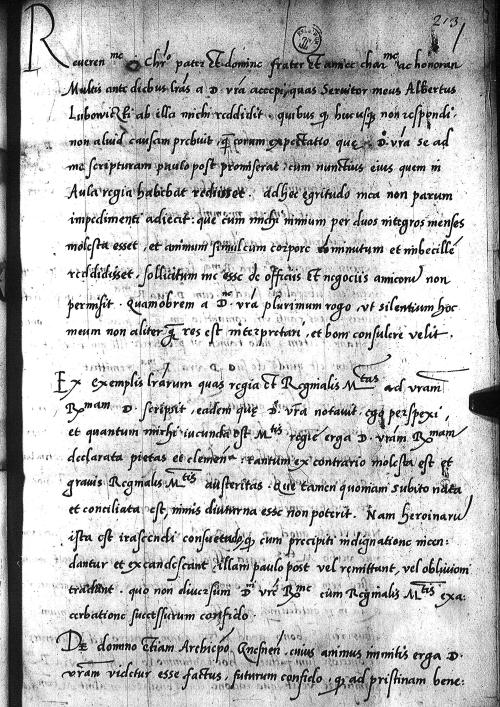 213
Reveren^me Chr̃o pater Et domine frater Et amice char^me ac honoran
Multis ante diebus lr̃as a D. vr̃a accepi, quas Servitor meus Albertus
Luboviczki ab illa michi reddidit. quibus q̃ hucusq̃ non respondi.
non aliud causam prebuit, q̃ eorum expectatio que D. vr̃a se ad
me scripturam paulo post promiserat, cum nunctius eius quem in
Aula regia habebat redisset. adhec egritudo mea non parum
impedimenti adiecit: que cum michi nimium per duos integros menses
molesta esset, et animum simul cum corpore minutum et imbecille
reddidisset, sollicitum me esse de officiis Et negociis amicorũ non
permisit. Quamobrem a D.^ne vr̃a plurimum rogo, vt silentium hoc
meum non aliter q̃ res est interpretari, et boni consulere velit.
Ex exemplis lr̃arum quas regia Et Reginalis M^tas ad vram
R^mam D. scripsit, eadem que D. vr̃a notavit, ego perspexi,
et quantum michi iucunda est M^tis regie erga D. vr̃am R^mam
declarata pietas et clemen^a, tantum ex contrario molesta est et
gravis Reginalis M^tis austeritas. Que tamen quoniam subito nata
et conciliata est, nimis diuturna esse non poterit. Nam heroinarũ
ista est irascendi consuetudo, q̃ cum precipiti indignatione incen:
dantur et excandescant, illam paulo post vel remittant, vel oblivioni
tradant. quo non diversum D.^ni vr̃e R^me cum Reginalis M^tis exa:
cerbatione successurum confido.
De domino Etiam Archiepo. Gnesnen. cuius animus inmitis erga D.
vr̃am videtur esse factus, futurum confido, q̃ ad pristinam bene: